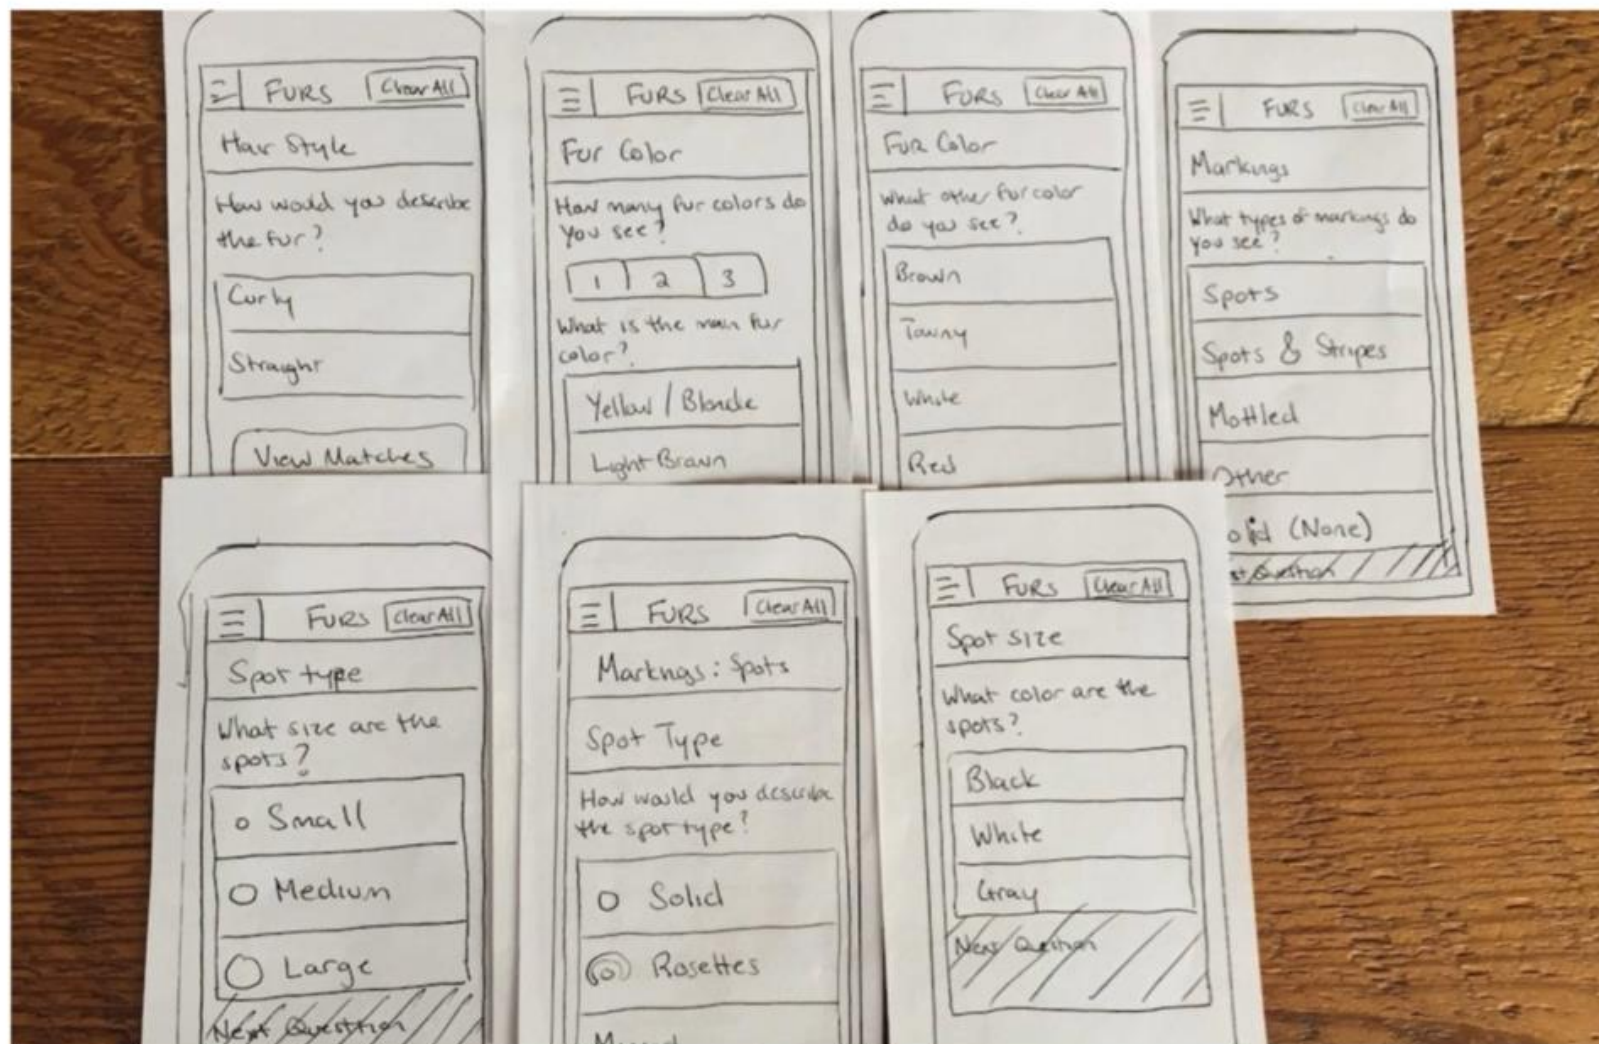 FURS Clear All
Hair Style
How would you describe
the fur?
Curly
Straight
View Matches
FURS Clear All
Fur Color
How many fur colors do
you see?
1 2 3
What is the main fur
color?
Yellow / Blonde
Light Brown
FURS Clear All
Fur Color
What other fur color
do you see?
Brown
Tawny
White
Red
FURS Clear All
Markings
What types of markings do
you see?
Spots
Spots & Stripes
Mottled
Other
olid (None)
st Question
FURS Clear All
Spot type
What size are the
spots?
Small
Medium
Large
Next Question
FURS Clear All
Markings: Spots
Spot Type
How would you describe
the spot type?
Solid
Rosettes
FURS Clear All
Spot size
What color are the
spots?
Black
White
Gray
Next Question